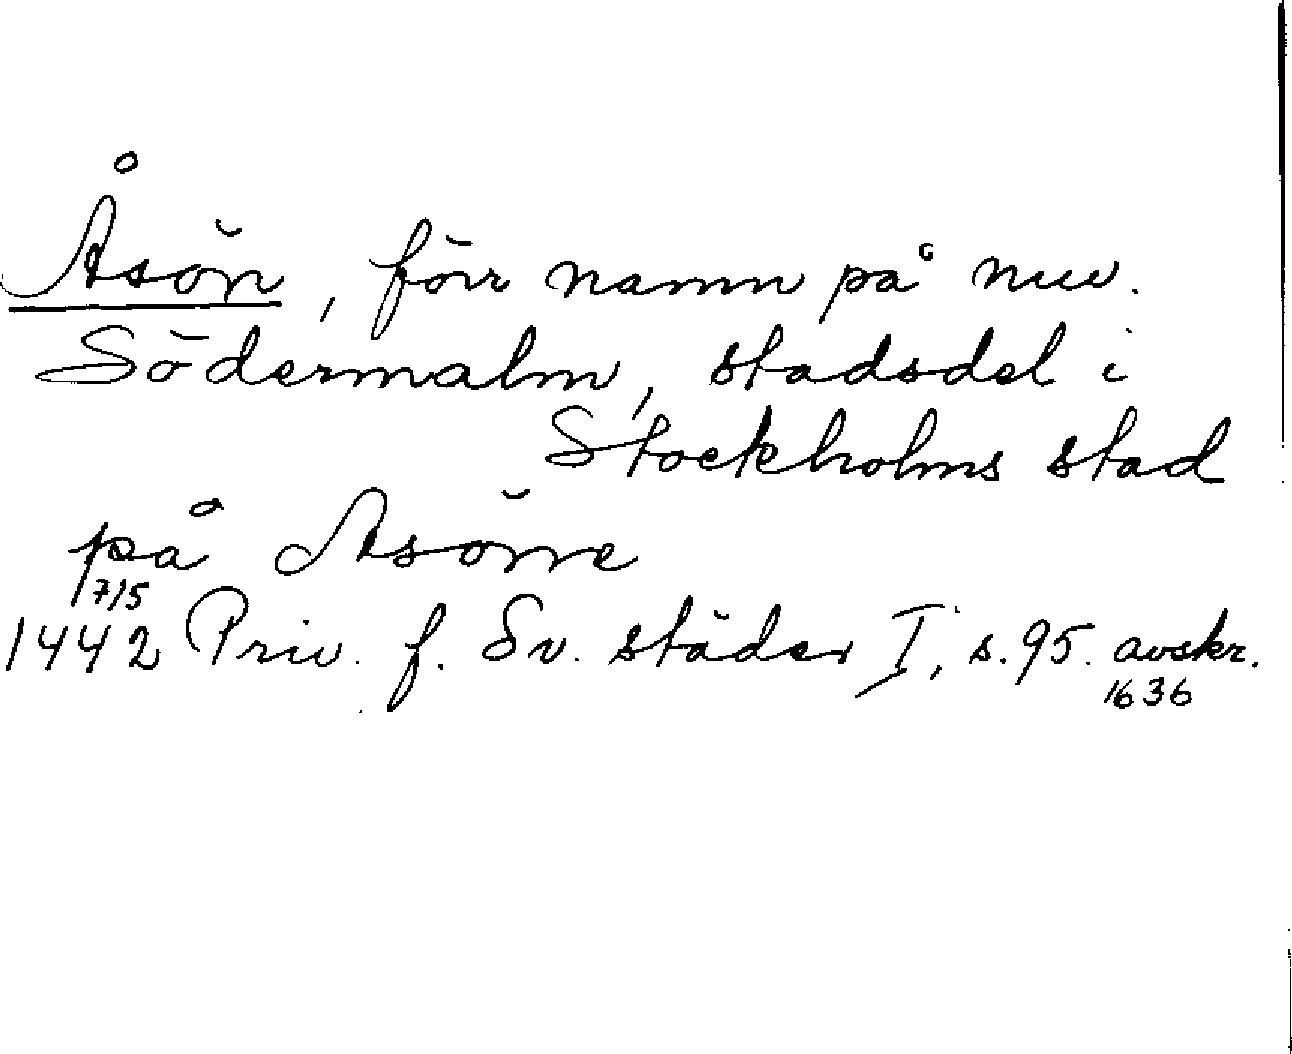 Åsön, förr namn på nuv.
Södermalm, stadsdel i
Stockholms stad
på Asönne
17/5
1442 Priv. f. Sv. städer I, s. 95. avskr.
1636